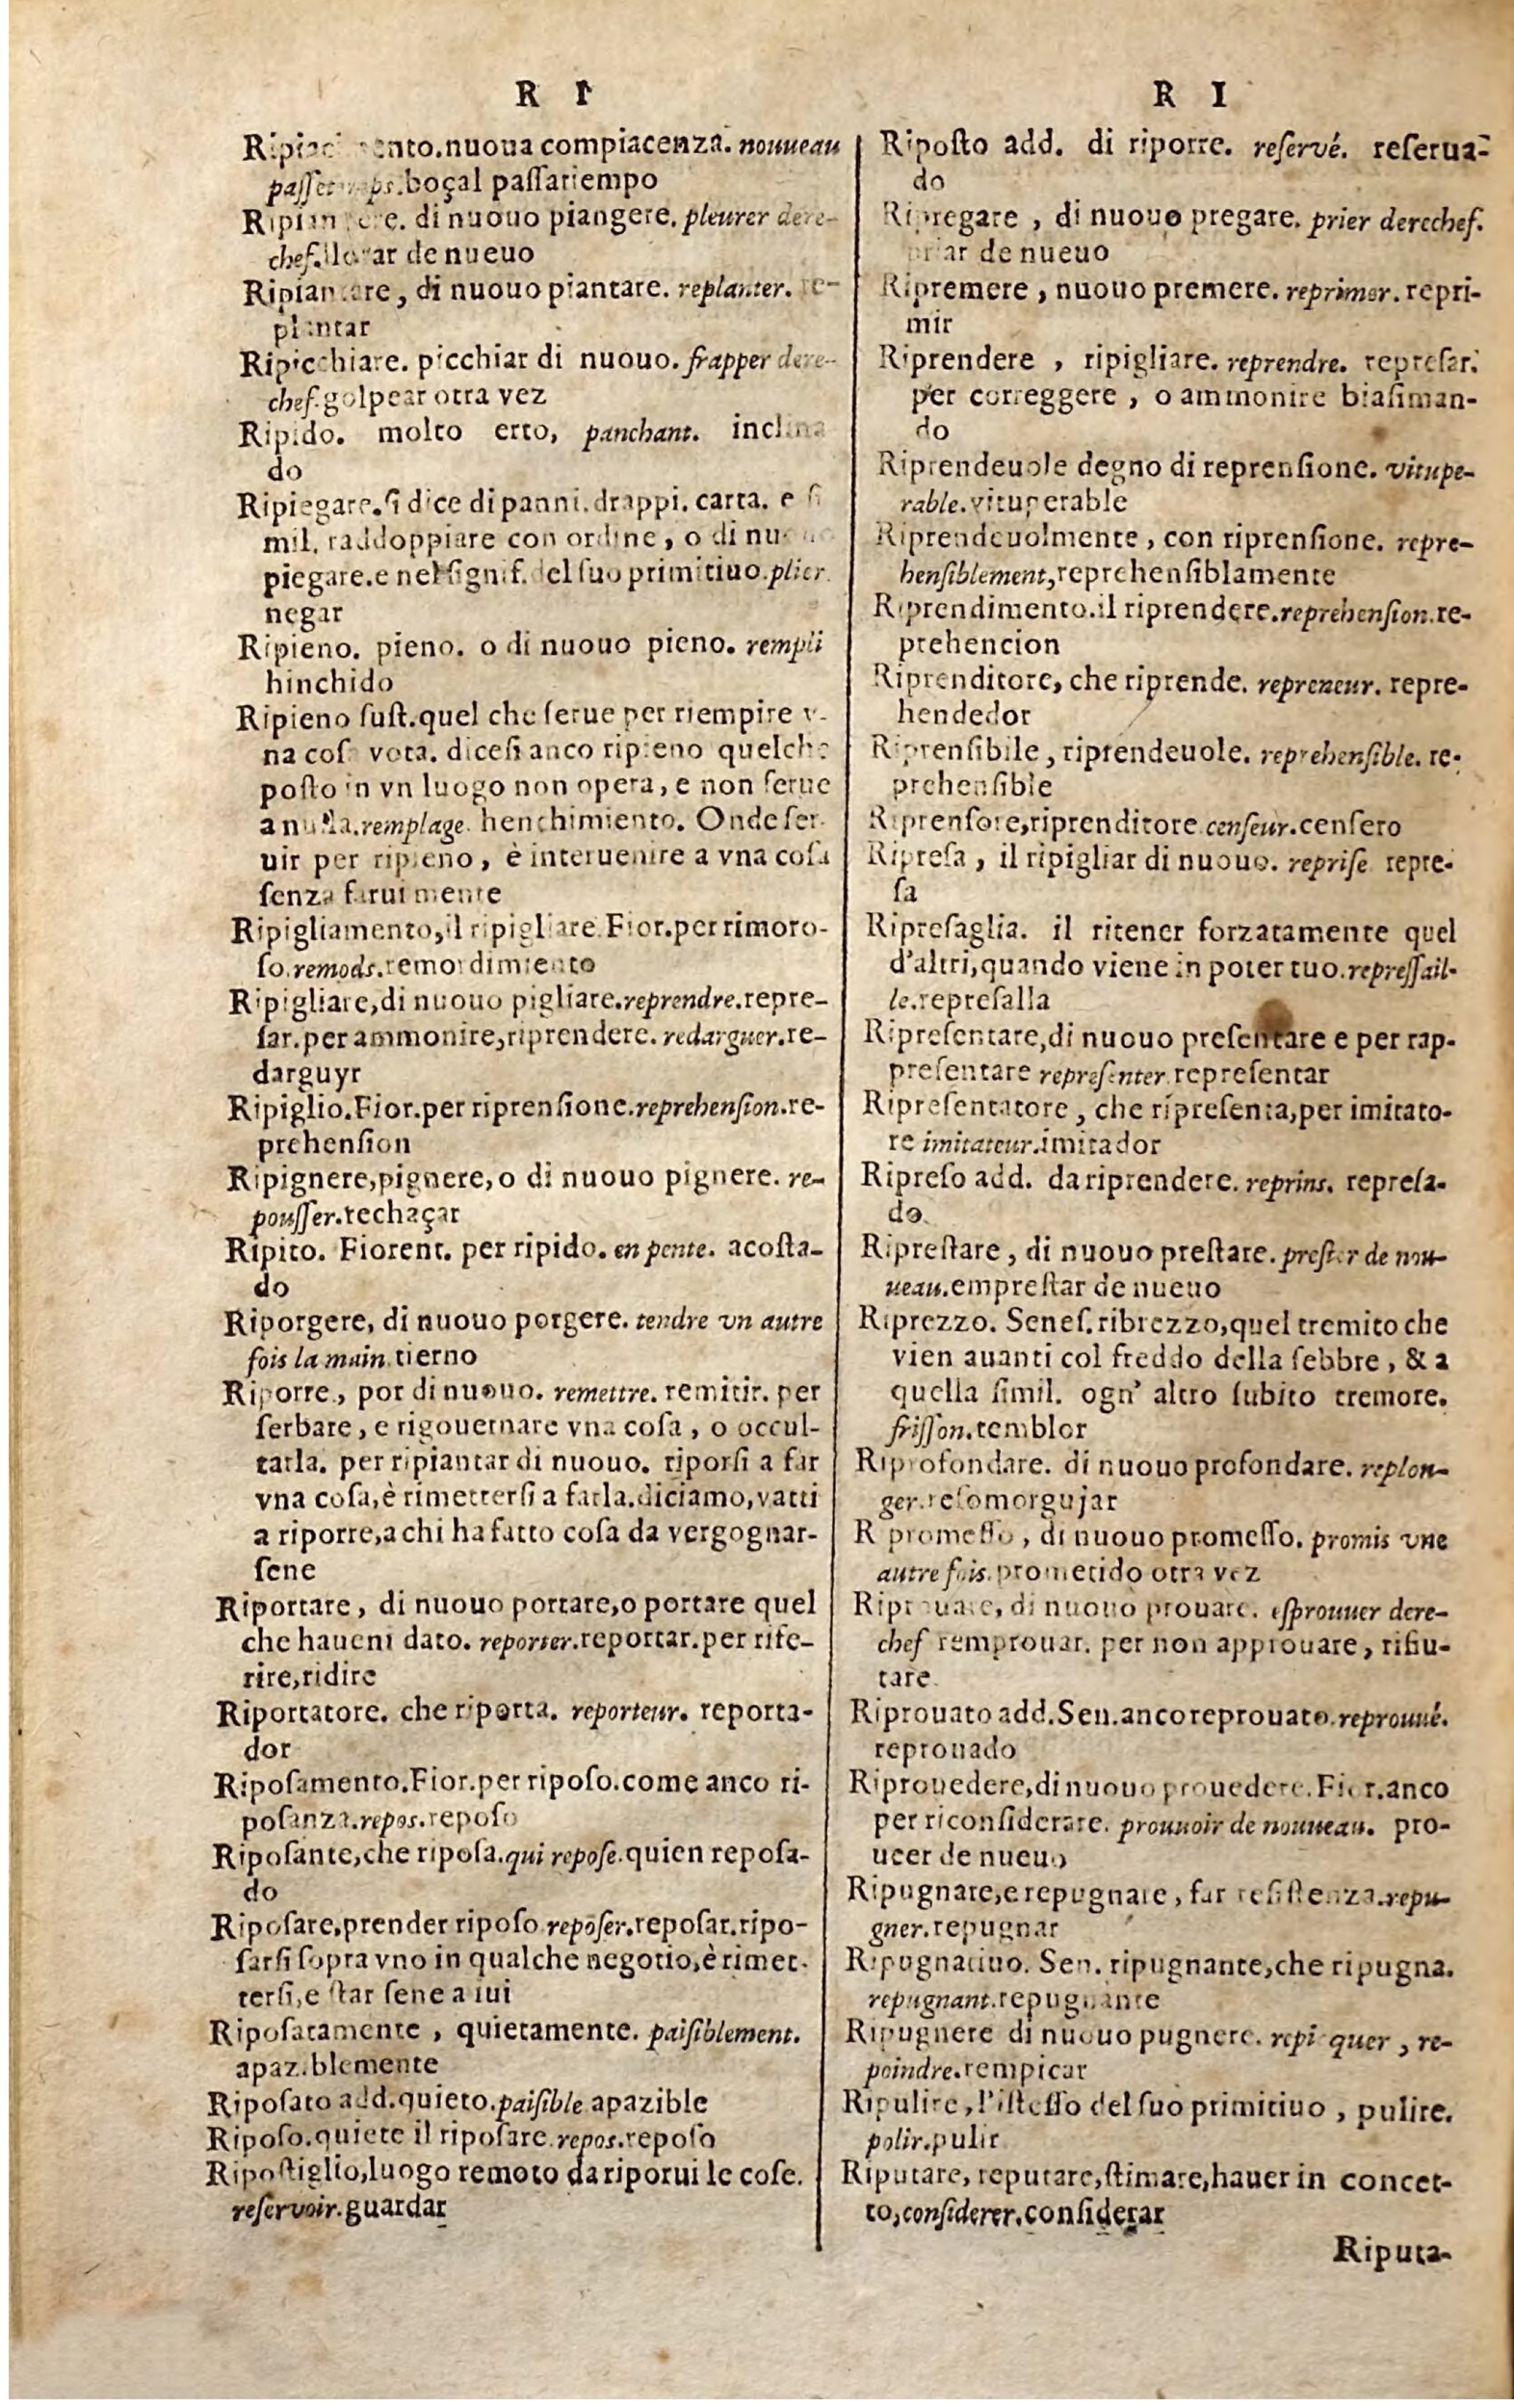 R I
nuoua compiacenza. nouueau
boçal passatiempo
di nuouo piangere. pleurer dere-
chef. ar de nueuo
Ripiantare, di nuouo piantare. replanter. re-
plantar
Ripicchiare. picchiar di nuouo. frapper dere-
chef. golpear otra vez
Ripido. molto erto, panchant. inclina
do
Ripiegare. si dice di panni. drappi. carta. e si
mil. raddoppiare con ordine, o di nuouo
piegare. e nel signif. del suo primitiuo. plier.
negar
Ripieno. pieno. o di nuouo pieno. rempli
hinchido
Ripieno sust. quel che serue per riempire v-
na cosa vota. dicesi anco ripieno quelche
posto in vn luogo non opera, e non serue
a nulla. remplage. henchimiento. Onde ser-
uir per ripieno, è interuenire a vna cosa
senza farui niente
Ripigliamento, il ripigliare. Fior. per rimoro-
so. remods. remordimiento
Ripigliare, di nuouo pigliare. reprendre. repre-
sar. per ammonire, riprendere. redarguer. re-
darguyr
Ripiglio. Fior. per riprensione. reprehension. re-
prehension
Ripignere, pignere, o di nuouo pignere. re-
pousser. rechaçar
Ripito. Fiorent. per ripido. en pente. acosta-
do
Riporgere, di nuouo porgere. tendre vn autre
fois la main. tierno
Riporre, por di nuouo. remettre. remitir. per
serbare, e rigouernare vna cosa, o occul-
tarla. per ripiantar di nuouo. riporsi a far
vna cosa, è rimettersi a farla. diciamo, vatti
a riporre, a chi ha fatto cosa da vergognar-
sene
Riportare, di nuouo portare, o portare quel
che haueni dato. reporter. reportar. per rife-
rire, ridire
Riportatore. che riporta. reporteur. reporta-
dor
Riposamento. Fior. per riposo. come anco ri-
posanza. repos. reposo
Riposante, che riposa. qui repose. quien reposa-
do
Riposare, prender riposo. reposer. reposar. ripo-
sarsi sopra vno in qualche negotio, è rimet-
tersi, e star sene a lui
Riposatamente, quietamente. paisiblement.
apaziblemente
Riposato add. quieto. paisible apazible
Riposo. quiete il riposare. repos. reposo
Ripostiglio, luogo remoto da riporui le cose.
reservoir. guardar
R I
Riposto add. di riporre. reservé. reserua-
do
Ripregare, di nuouo pregare. prier derechef.
priar de nueuo
Ripremere, nuouo premere. reprimer. repri-
mir
Riprendere, ripigliare. reprendre. represar.
per correggere, o ammonire biasiman-
do
Riprendeuole degno di reprensione. vitupe-
rable. vituperable
Riprendeuolmente, con riprensione. repre-
hensiblement, reprehensiblamente
Riprendimento. il riprendere. reprehension. re-
prehencion
Riprenditore, che riprende. repreneur. repre-
hendedor
Riprensibile, riprendeuole. reprehensible. re-
prehensible
Riprensore, riprenditore. censeur. censero
Ripresa, il ripigliar di nuouo. reprise repre-
sa
Ripresaglia. il ritener forzatamente quel
d'altri, quando viene in poter tuo. repressail-
le. represalla
Ripresentare, di nuouo presentare e per rap-
presentare representer. representar
Ripresentatore, che ripresenta, per imitato-
re imitateur. imitador
Ripreso add. da riprendere. reprins. represa-
do.
Riprestare, di nuouo prestare. prester de nou-
ueau. emprestar de nueuo
Riprezzo. Senes. ribrezzo, quel tremito che
vien auanti col freddo della febbre, & a
quella simil. ogn' altro subito tremore.
frisson. temblor
Riprofondare. di nuouo profondare. replon-
ger. resomorgujar
Ripromesso, di nuouo promesso. promis vne
autre fois. prometido otra vez
Riprouare, di nuouo prouare. esprouuer dere-
chef remprouar. per non approuare, rifiu-
tare.
Riprouato add. Sen. anco reprouato. reprouué.
reprouado
Riprouedere, di nuouo prouedere. Fior. anco
per riconsiderare. prouuoir de nouueau. pro-
ueer de nueuo
Ripugnare, e repugnare, far resistenza. repu-
gner. repugnar
Ripugnatiuo. Sen. ripugnante, che ripugna.
repugnant. repugnante
Ripugnere di nuouo pugnere. repicquer, re-
poindre. rempicar
Ripulire, l'istesso del suo primitiuo, pulire.
polir. pulir
Riputare, reputare, stimare, hauer in concet-
to, considerer. considerar
Riputa-